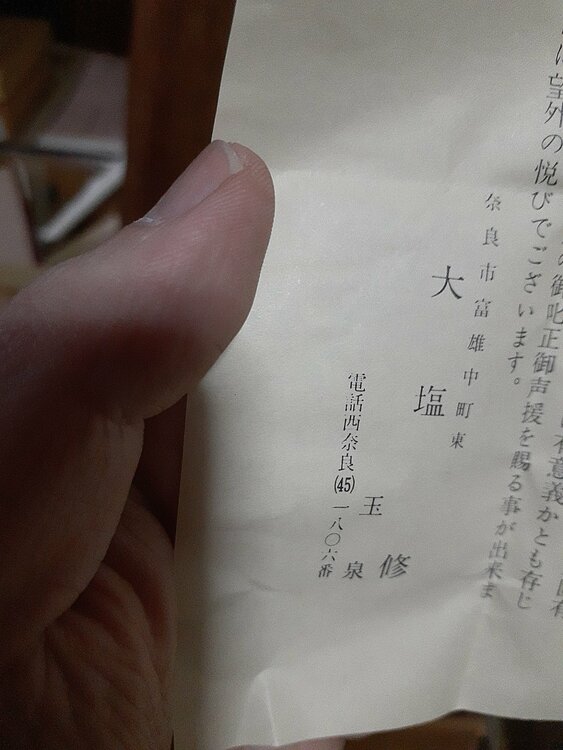 有意義かとも存じ
の御叱正御声援を賜る事が出来ま
は望外の悦びでございます。
奈良市富雄中町東
大塩修
玉泉
電話西奈良(45)一八〇六番